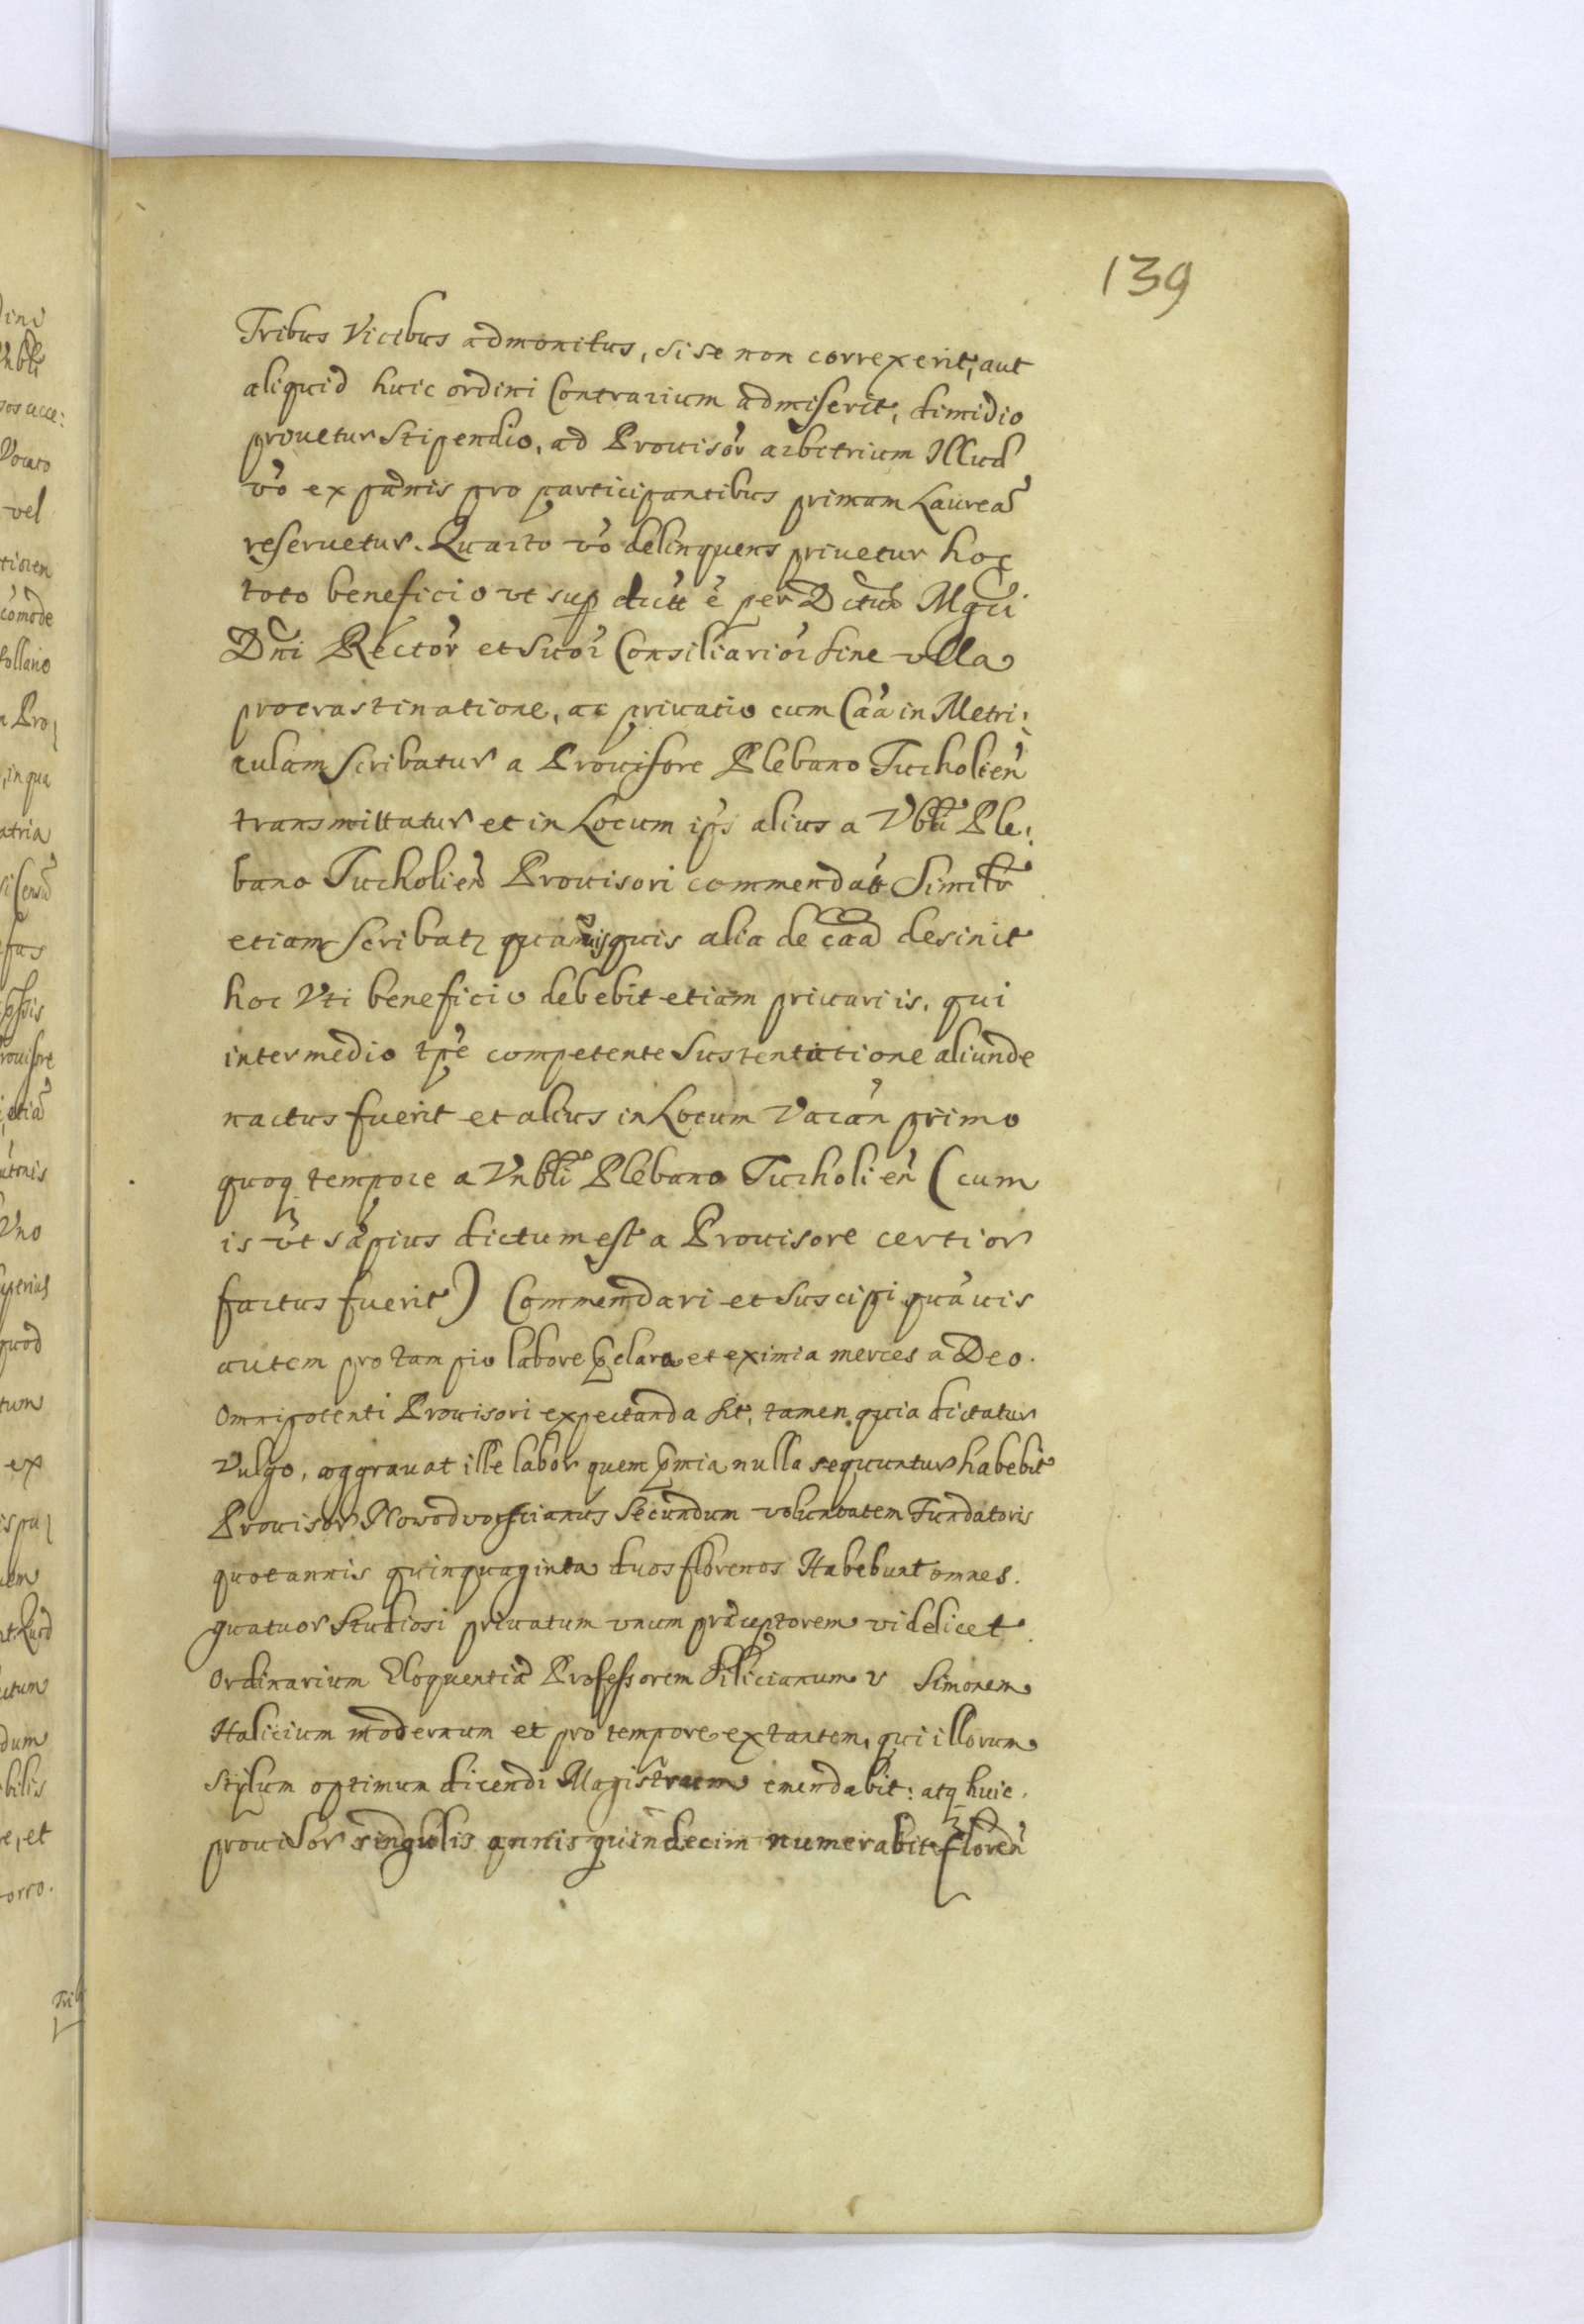 139
Tribus Vicibus admonitus, si se non correxerit, aut
aliquid huic ordini Contrarium admiserit, dimidio
priuetur Stipendio, ad Prouisor̃ arbitrium Illud
vo᷑ ex pænis pro participantibus primam Laureã
reseruetur. Quarto vo᷑ delinquens priuetur hoc
toto beneficio vt sup dictũ ẽ per Dctũ Mgci
Dni Rector̃ et Suor̃ Consiliarior̃ sine vlla
procrastinatione, ac priuatio cum Caã in Metri:
culam Scribatur a Prouisore Plebano Tucholien̄
transmittatur et in Locum ips̃ alius a Vbli Ple:
bano Tucholien̄ Prouisori commendat̃ Similr̃
etiam Scribatz quamuis quis alia de caã desinit
hoc Vti beneficio debebit etiam priuari is, qui
intermedio tp̃e competente Sustentatione aliunde
nactus fuerit et alius in Locum Vacan̄ primo
quoq tempore a Vnbli Plebano Tucholien̄ (cum
is vt sæpius dictum est a Prouisore certior
factus fuerit) Commendari et Suscipi quãuis
autem pro tam pio labore p̃clara et eximia merces a Deo.
Omnipotenti Prouisori expectanda sit, tamen quia dictatur
Vulgo, aggrauat ille labor quem p̃mia nulla sequuntur habebit
Prouisor Nowodvorscianus Secundum voluntatem Fundatoris
quotannis quinquaginta duos florenos Habebunt omnes.
quatuor Studiosi priuatum vnum præceptorem videlicet
Ordinarium Eloquentiæ Professorem Silicianum v Simonem
Halicium modernum et pro tempore extantem, qui illorum
Stylum optimum dicendi Magistrum emendabit: atq huic.
prouisor singulis annis quindecim numerabit floren̄